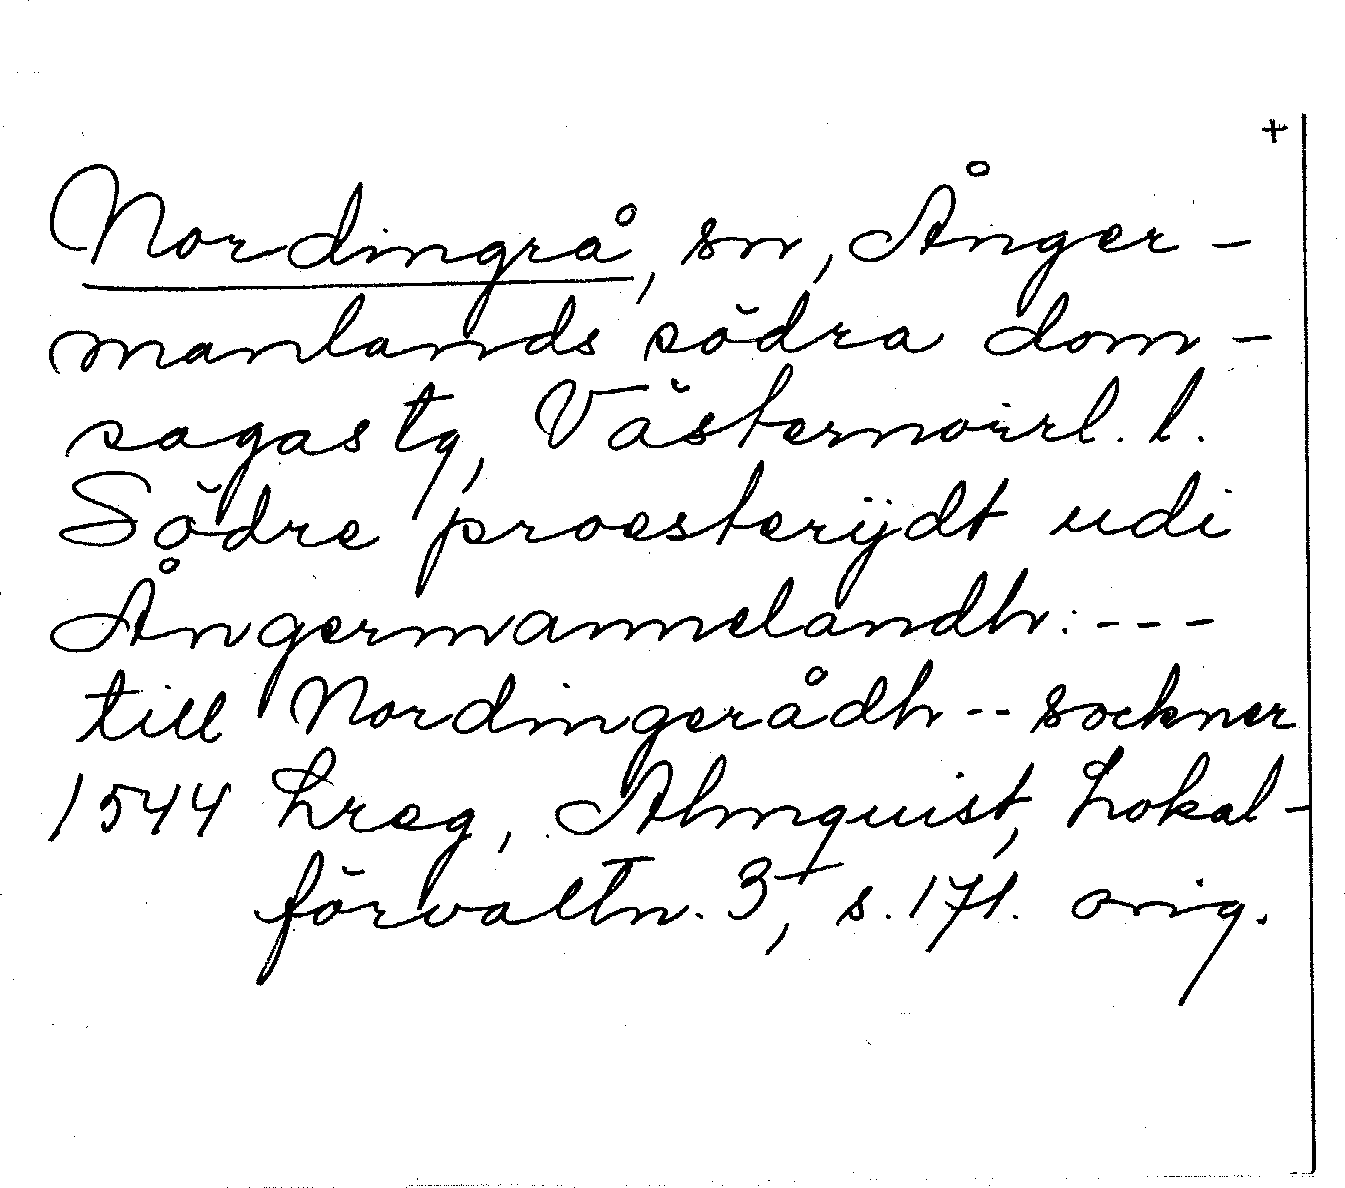 +
Nordingrå, sn, Ånger-
manlands södra dom-
sagas tg, Västernorrl. l.
Södre proesterijdt udi
Ångermannelandh: ---
till Nordingerådh -- sockner
1544 Lreg, Almquist, Lokal-
förvaltn. 3, s. 171. orig.